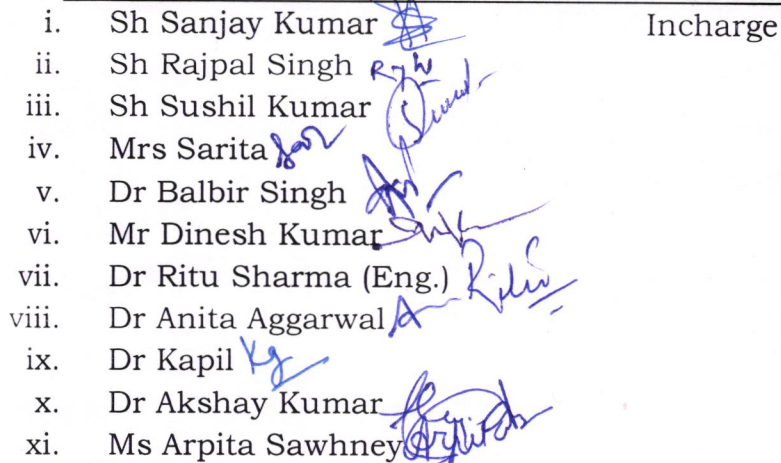 i. Sh Sanjay Kumar Incharge
ii. Sh Rajpal Singh
iii. Sh Sushil Kumar
iv. Mrs Sarita
v. Dr Balbir Singh
vi. Mr Dinesh Kumar
vii. Dr Ritu Sharma (Eng.)
viii. Dr Anita Aggarwal
ix. Dr Kapil
x. Dr Akshay Kumar
xi. Ms Arpita Sawhney